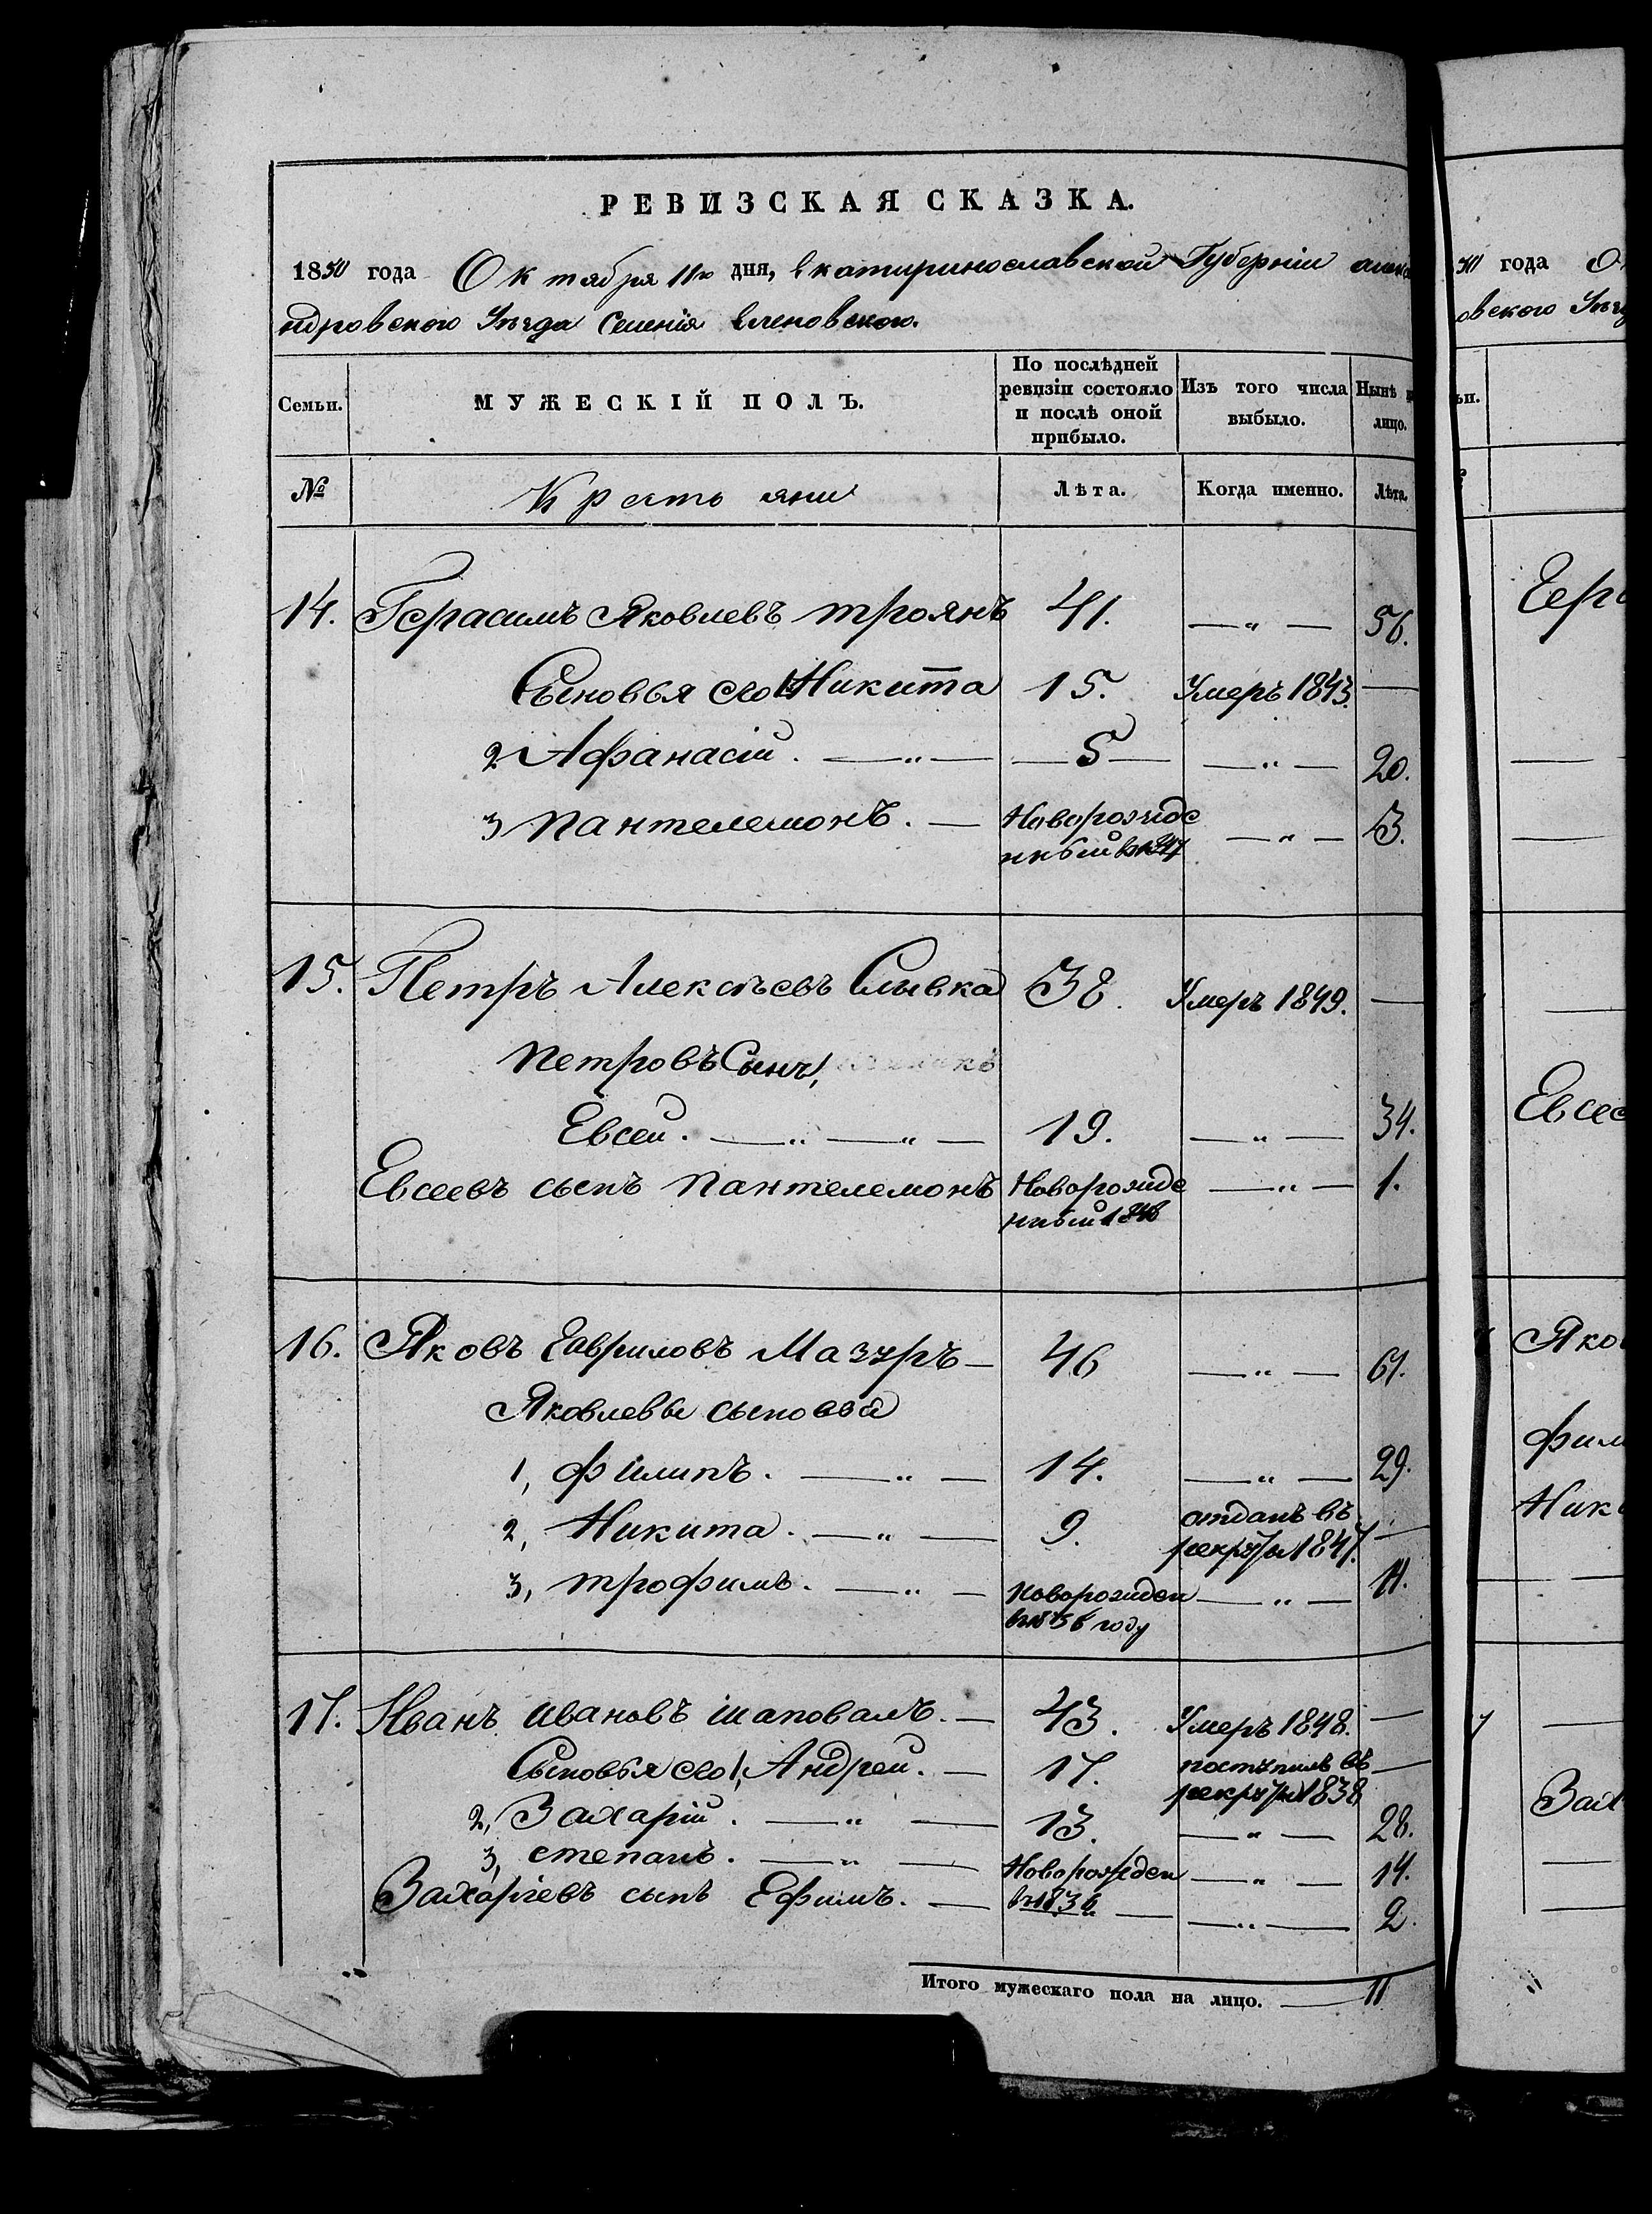 РЕВИЗСКАЯ СКАЗКА.
1850 года Октября 11го дня, Екатиринославской Губерніи алекса
ндровского Уѣзда Селенія Еленовского.
Семьи. МУЖЕСКІЙ ПОЛЪ. По послѣдней ревизіи состояло и послѣ оной прибыло. Изъ того числа выбыло. Нынѣ на лицо.
№ Крестьяни Лѣта. Когда именно. Лѣта.
14. Герасимъ Яковлевъ троянъ 41. —„— 56.
Сыновья его 1 Никита 15. Умеръ 1843. —
2 Афанасій. —„— —5— —„— 20.
3 Пантелемонъ. — Новорожде —„— 3.
нный въ 1847
15. Петръ Алексѣевъ Сливка 38. Умеръ 1849. —
Петровъ Сынъ 1,
Евсей. —„—„— 19. —„— 34.
Евсеевъ сынъ Пантелемонъ Новорожде —„— 1.
нный 1848
16. Яковъ Гавриловъ Мазуръ — 46 —„— 61.
Яковлевы сыновья
1, филипъ. —„— 14. —„— 29.
2, Никита. —„— 9. отданъ въ —
рекруты 1847.
3, трофимъ. —„— новорожден —„— 11.
въ 1836 году
17. Иванъ ивановъ шаповалъ. — 43. Умеръ 1848. —
Сыновья его 1, Андрей. — 17. поступилъ въ —
рекруты 1838
2, Захарій. —„— 13. —„— 28.
3, степанъ. —„— Новорожден —„— 14.
въ 1836
Захаріевъ сынъ Ефимъ. — — —„— 2.
Итого мужескаго пола на лицо. — 11
50 года О
овского Уѣзд
ьи.
Гера
Евсее
Яко
фили
Ник
Зах